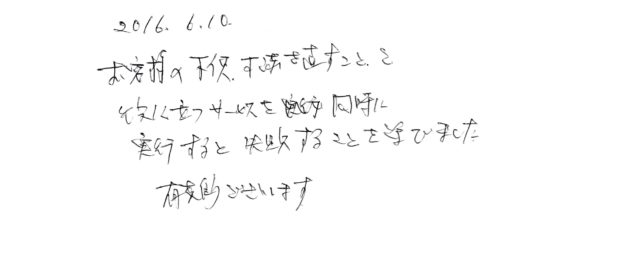 2016. 6.10.
お客様の不便、すきを直すこと、と
役に立つサービスを 同時に
実行すると 失敗することを学びました
有難うございます